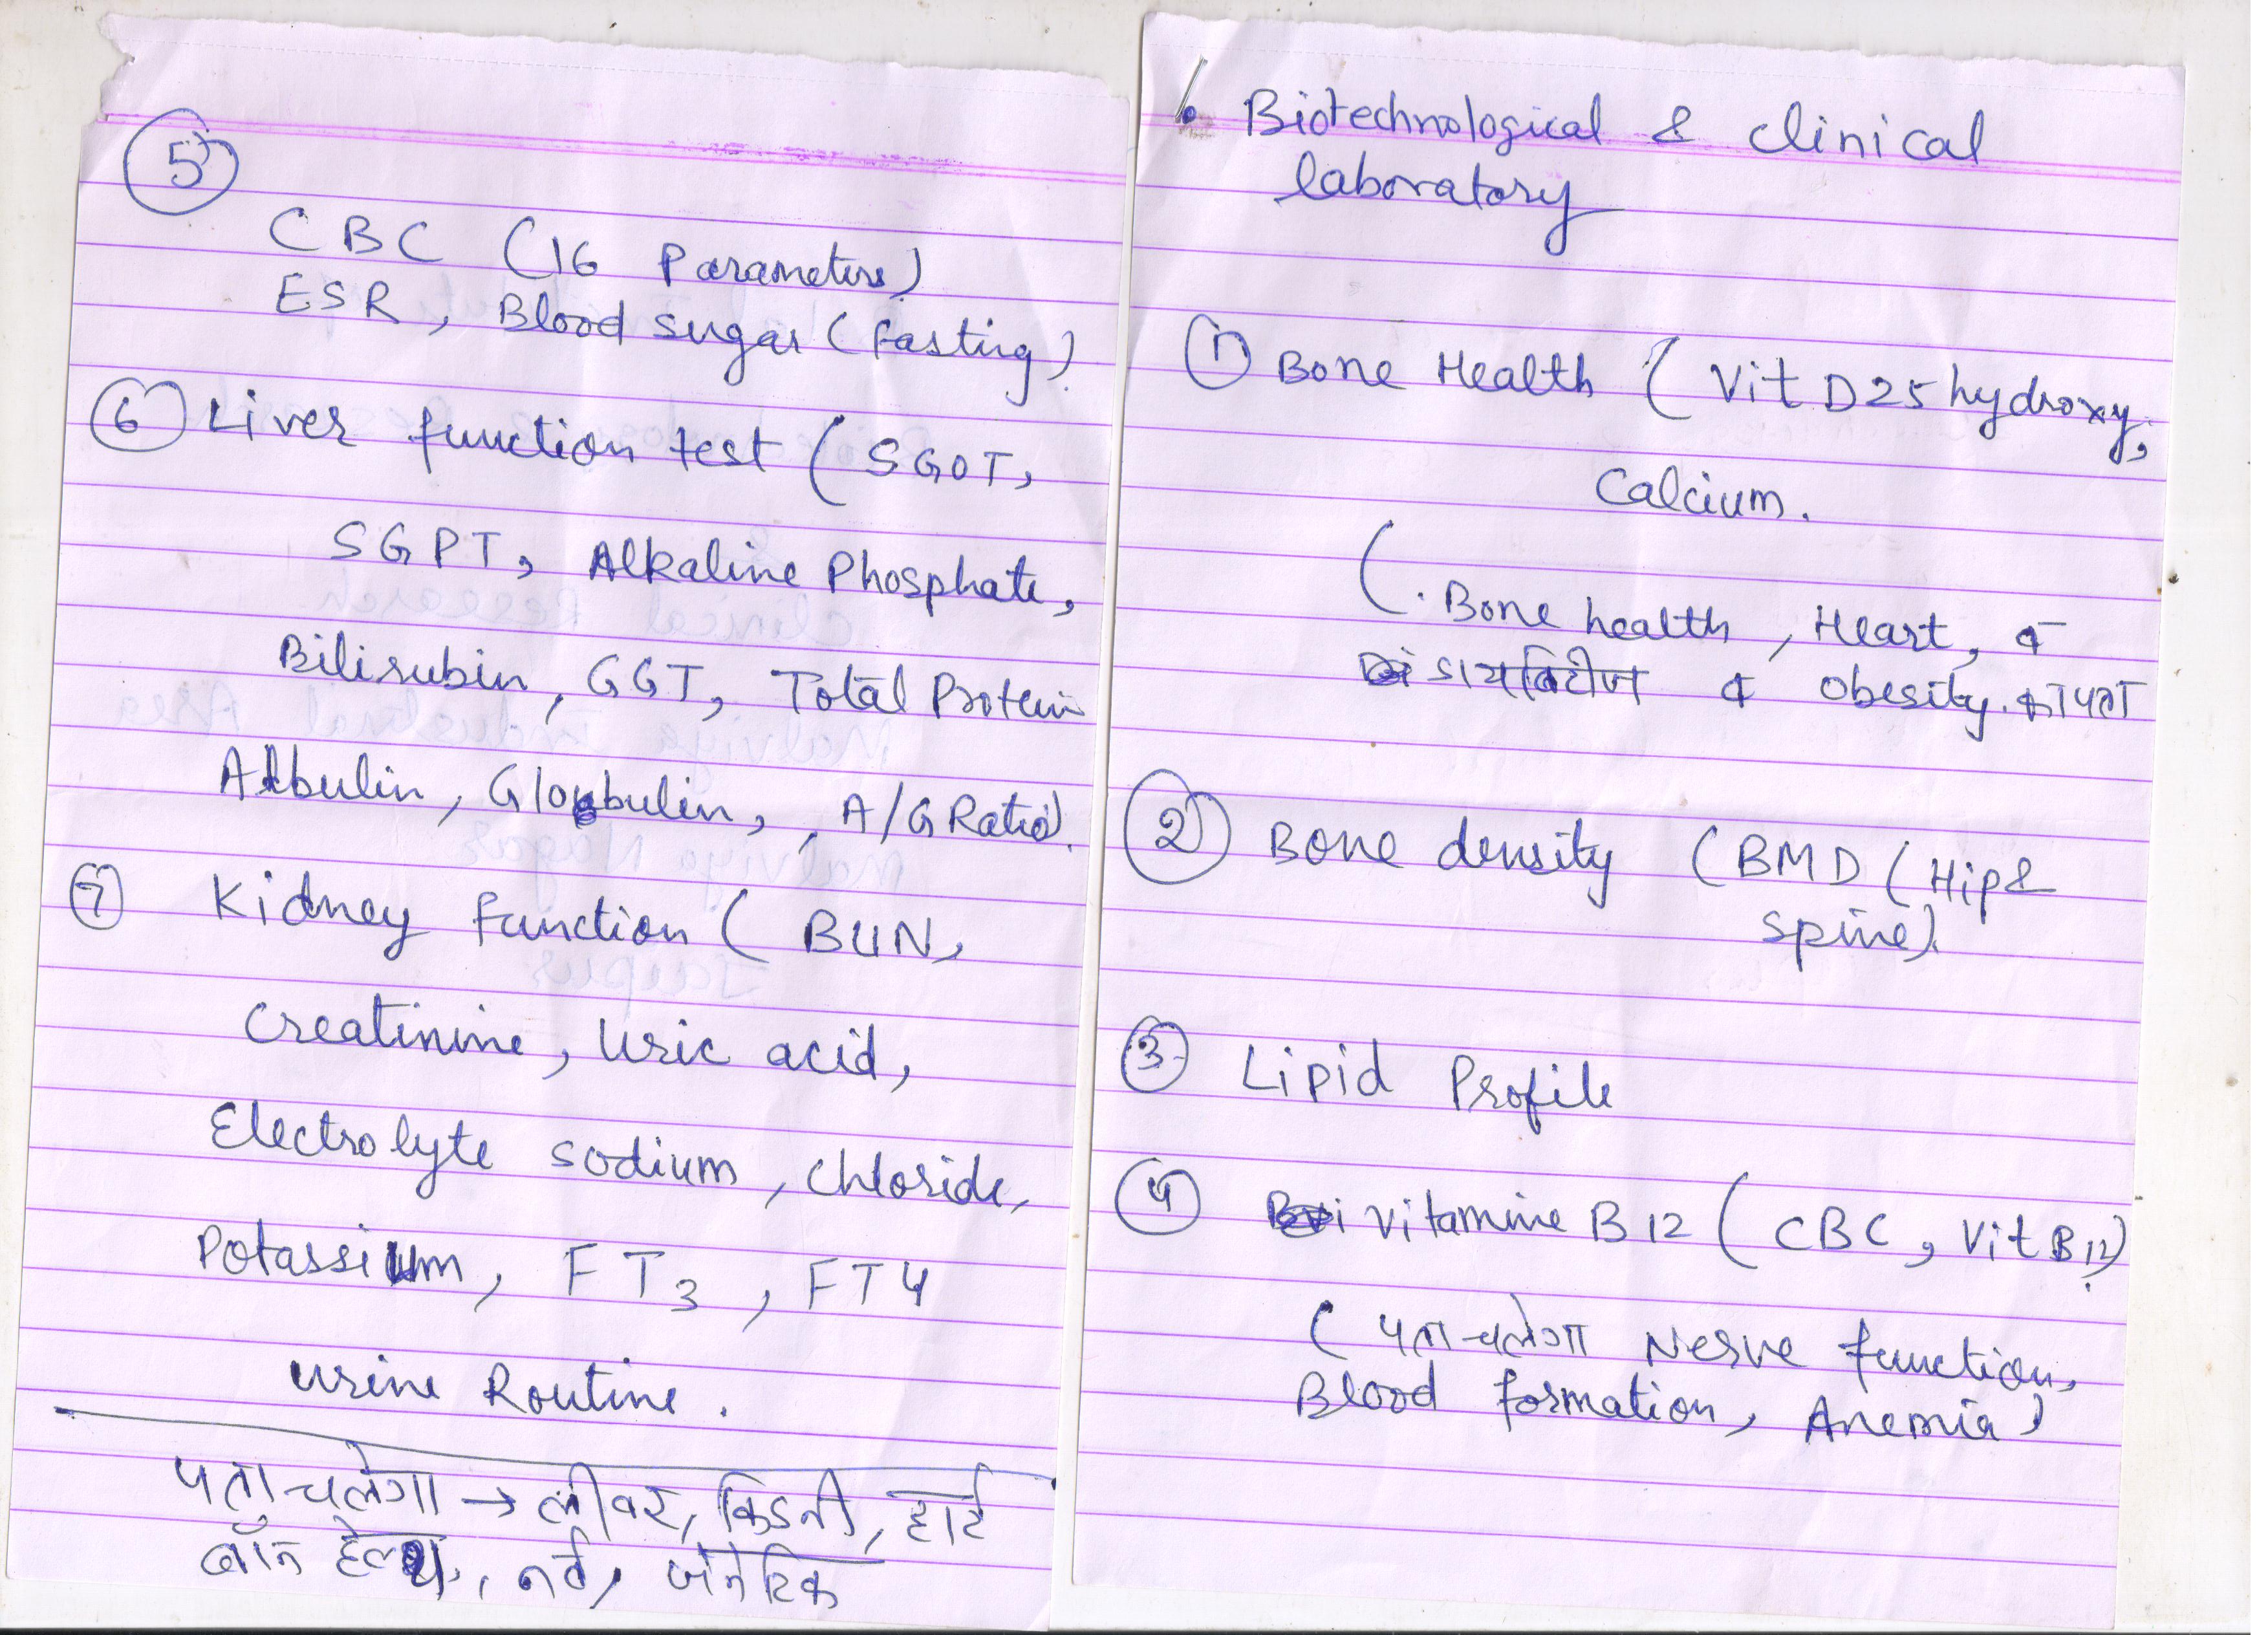 • Biotechnological & clinical
laboratory
① Bone Health ( Vit D25 hydroxy,
Calcium.
( . Bone health, Heart, व
डायबिटीज व obesity. का पता
② Bone density (BMD (Hip &
spine).
③ Lipid Profile
④ Vitamine B12 ( CBC, Vit B12)
( पता चलेगा Nerve function,
Blood formation, Anemia)
⑤
CBC (16 Parameters)
ESR, Blood sugar (fasting)
⑥ Liver function test ( SGOT,
SGPT, Alkaline Phosphate,
Bilirubin, GGT, Total Protein
Albulin, Globulin, , A/G Ratio).
⑦ Kidney Function ( BUN,
Creatinine, Uric acid,
Electrolyte sodium, Chloride,
Potassium, FT3, FT4
Urine Routine.
पता चलेगा → लीवर, किडनी, हार्ट
बॉन हेल्थ, नर्व, जेनेटिक